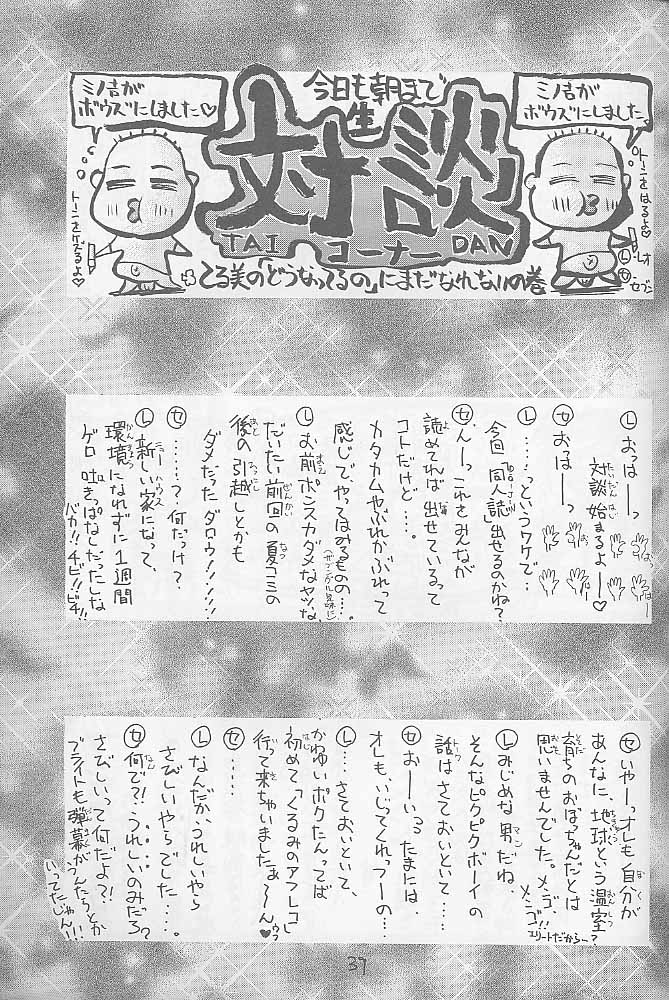 今日も朝まで
生
対談
TAI コーナー DAN
てる美の「どうなってるの」にまだなれないの巻
ミノ吉が
ボウズにしました。
トーンをはるよ
レオ
セブン
ミノ吉が
ボウズにしました♡
トーンをケズるよ♡
Ⓛおっはーっ
対談始まるよー♡
たいだんはじ
㋝おっはーっ
Ⓛ……っというワケで…
今回「同人誌」出せるのかね?
㋝んーっこれをみんなが
読めてれば出せているって
コトだけど…。
カタカムやぶれかぶれって
感じで、やってはみるもの…。
Ⓛお前ポンスカダメなヤツな
だいたい前回の夏コミの
後の引越しとかも
ダメだったダロウ!!!!!
㋝……?何だっけ?
Ⓛ新しい家になって、
ニューハウス
環境になれずに1週間
かんきょう
ゲロ吐きっぱなしだったしな
バカ!!チビ!!ビチ!!
㋝いやーっオレも自分が
ぼく
あんなに、地球という温室
ちきゅう おんしつ
育ちのおぼっちゃんだとは
そだ
思いませんでした。メンゴメンゴ!!
おも
エリートだからー?
Ⓛみじめな男だね、
マン
そんなピクピクボーイの
話はさておいといて…
トーク
㋝おーいっ たまには、
オレも、いじってくれっつーの…
Ⓛ…さておいといて、
かわゆいボクたんってば
初めて「くるみのアフレコ」
はじ
行って来ちゃいましたぁ〜ん♡
㋝……
Ⓛなんだか、うれしいやら
さびしいやらでした……。
㋝何で?!うれしいのみだろ?
なん
さびしいって何だよ?!
ブライトも弾幕がうんたらとか
だんまく
いってたじゃん!!
37